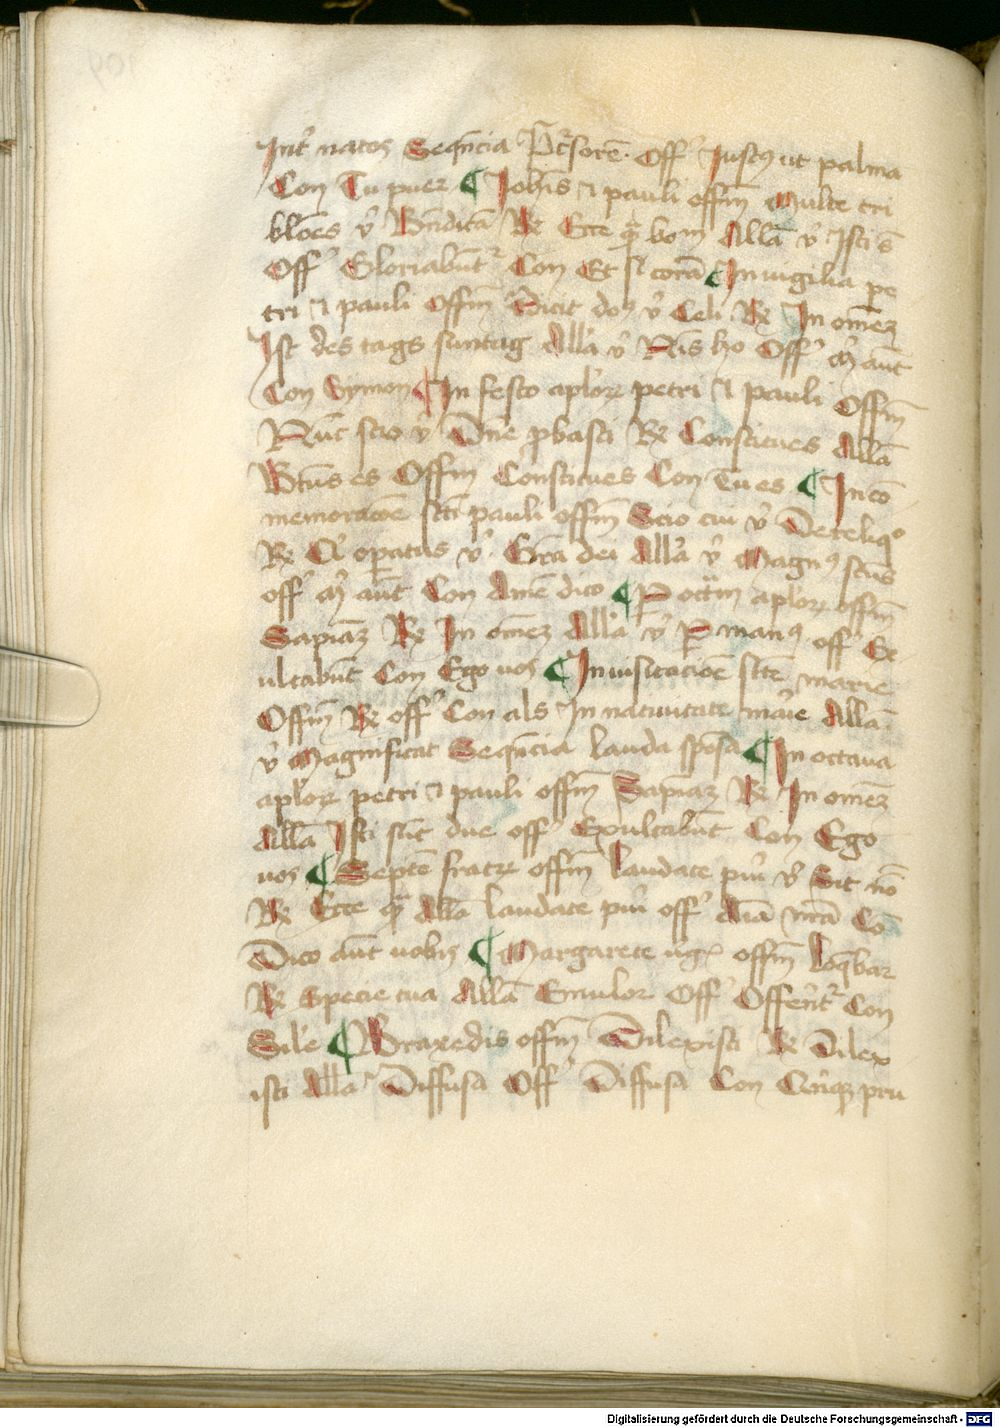 Int' natos Seqn̄cia P̄c'sorē. Off' Iustꝰ ut palma
Con Tu puer ¶ Ioh̄is ⁊ pauli offm̄ Multe tri
bl̄oes v̓ Bn̄dicā ℞ Ecce qͣ bom̄ Allā v̓ Isti s̄
Off' Gloriabūt᷑ Con Et si corā ¶ In uigilia pe
tri ⁊ pauli Offm̄ Dicit dn̄s v̓ Celi ℞ In om̄eꝫ
Ist des tags suntag Alla v̓ Nīs ho Off' m̓ aut̄
Con Symon ¶ In festo apl'oꝝ petri ⁊ pauli Offm̄
Nūc scio v̓ Dn̄e ꝓbasti ℞ Constitues Allā
Btūs es Offm̄ Constitues Con Tu es ¶ In cō
memoracōe sc̄ti pauli offm̄ Scio cui v̓ De reliqͦ
℞ Q' opatus v̓ Gr̄a dei Alla v̓ Magnꝰ sc̄us
off' m̓ aut̄ Con Amē dico ¶ P octām aploꝝ offm̄
Sapiaꝫ ℞ In om̄eꝫ Alla v̓ P manꝰ off' Ex
ultabūt Con Ego uos ¶ In uisitacioē sc̄te marie
Offm̄ ℞ off' Con als In natiuitate ma'ie Allā
v̓ Magnificat Seqn̄cia lauda spōsa ¶ In octaua
apl'oꝝ petri ⁊ pauli offm̄ Sapiaꝫ ℞ In om̄eꝫ
Allā Isti sūt due off' Exultabūt Con Ego
uos ¶ Septē fratrꝫ offm̄ laudate pu'i v̓ Sit nō
℞ Ecce qͣ Allā laudate pu'i off' Aīa nr̄a Cō
Dico aut̄ uobis ¶ Margarete uiḡ offm̄ loq̄bar
℞ Specie tua Allā Emulor Off' Offerēt᷑ Con
Sīle ¶ Praxedis offm̄ Dilexisti ℞ Dilex
isti Alla Diffusa Off' Diffusa Con Qn̄qꝫ pru
Digitalisierung gefördert durch die Deutsche Forschungsgemeinschaft - DFG